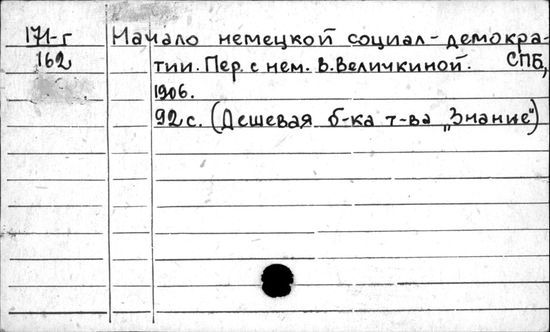 171-г Начало немецкой социал-демокра-
162 тии. Пер. с нем. В. Величкиной. СПБ,
1906.
92 с. (Дешевая б-ка т-ва „Знание")